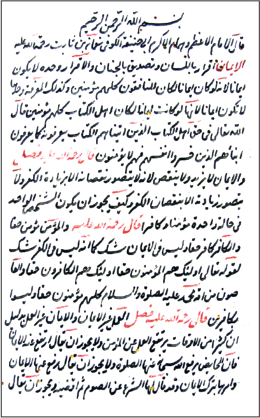 بسم الله الرحمن الرحيم
قال الامام الاعظم والهمام الاكرم ابو حنيفة الكوفى نعمان بن ثابت رحمة الله عليه
الايمان اقرار باللسان وتصديق بالجنان والاقرار وحده لا يكون
ايمانا لانه لو كان ايمانا لكان المنافقون كلهم مؤمنين وكذلك المعرفة وحدها
لا يكون ايمانا لانها لو كانت ايمانا لكان اهل الكتاب كلهم مؤمنين قال
الله تعالى فى حق اهل الكتاب الذين آتيناهم الكتاب يعرفونه كما يعرفون
ابناءهم الذين خسروا انفسهم فهم لا يؤمنون قال رحمة الله عليه فصل
والايمان لا يزيد ولا ينقص لانه لا يتصور نقصانه الا بزيادة الكفر ولا
يتصور زيادته الا بنقصان الكفر وكيف يجوز ان يكون الشخص الواحد
فى حالة واحدة مؤمنا وكافرا قال رحمة الله عليه والمؤمن مؤمن حقا
والكافر كافر حقا وليس فى الايمان شك كما انه ليس فى الكفر شك
لقوله تعالى اولئك هم المؤمنون حقا واولئك هم الكافرون حقا والعا
صون من امة محمد عليه الصلوة والسلام كلهم مؤمنون حقا وليسوا
بكافرين قال رحمة الله عليه فصل العمل غير الايمان والايمان غير العمل بدليل
ان كثيرا من الاوقات يرتفع العمل عن المؤمن ولا يجوز ان يقال ارتفع عنه الايمان
فان الحائض يرفع الله سبحانه عنها الصلوة ولا يجوز ان يقال رفع عنها الايمان
وامرها بترك الايمان وقد قال لها الشرع دعى الصوم ثم اقضيه ولا يجوز ان يقال